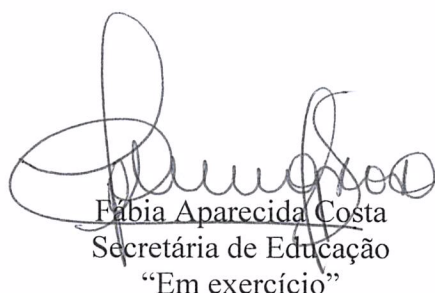 Fábia Aparecida Costa
Secretária de Educação
“Em exercício”